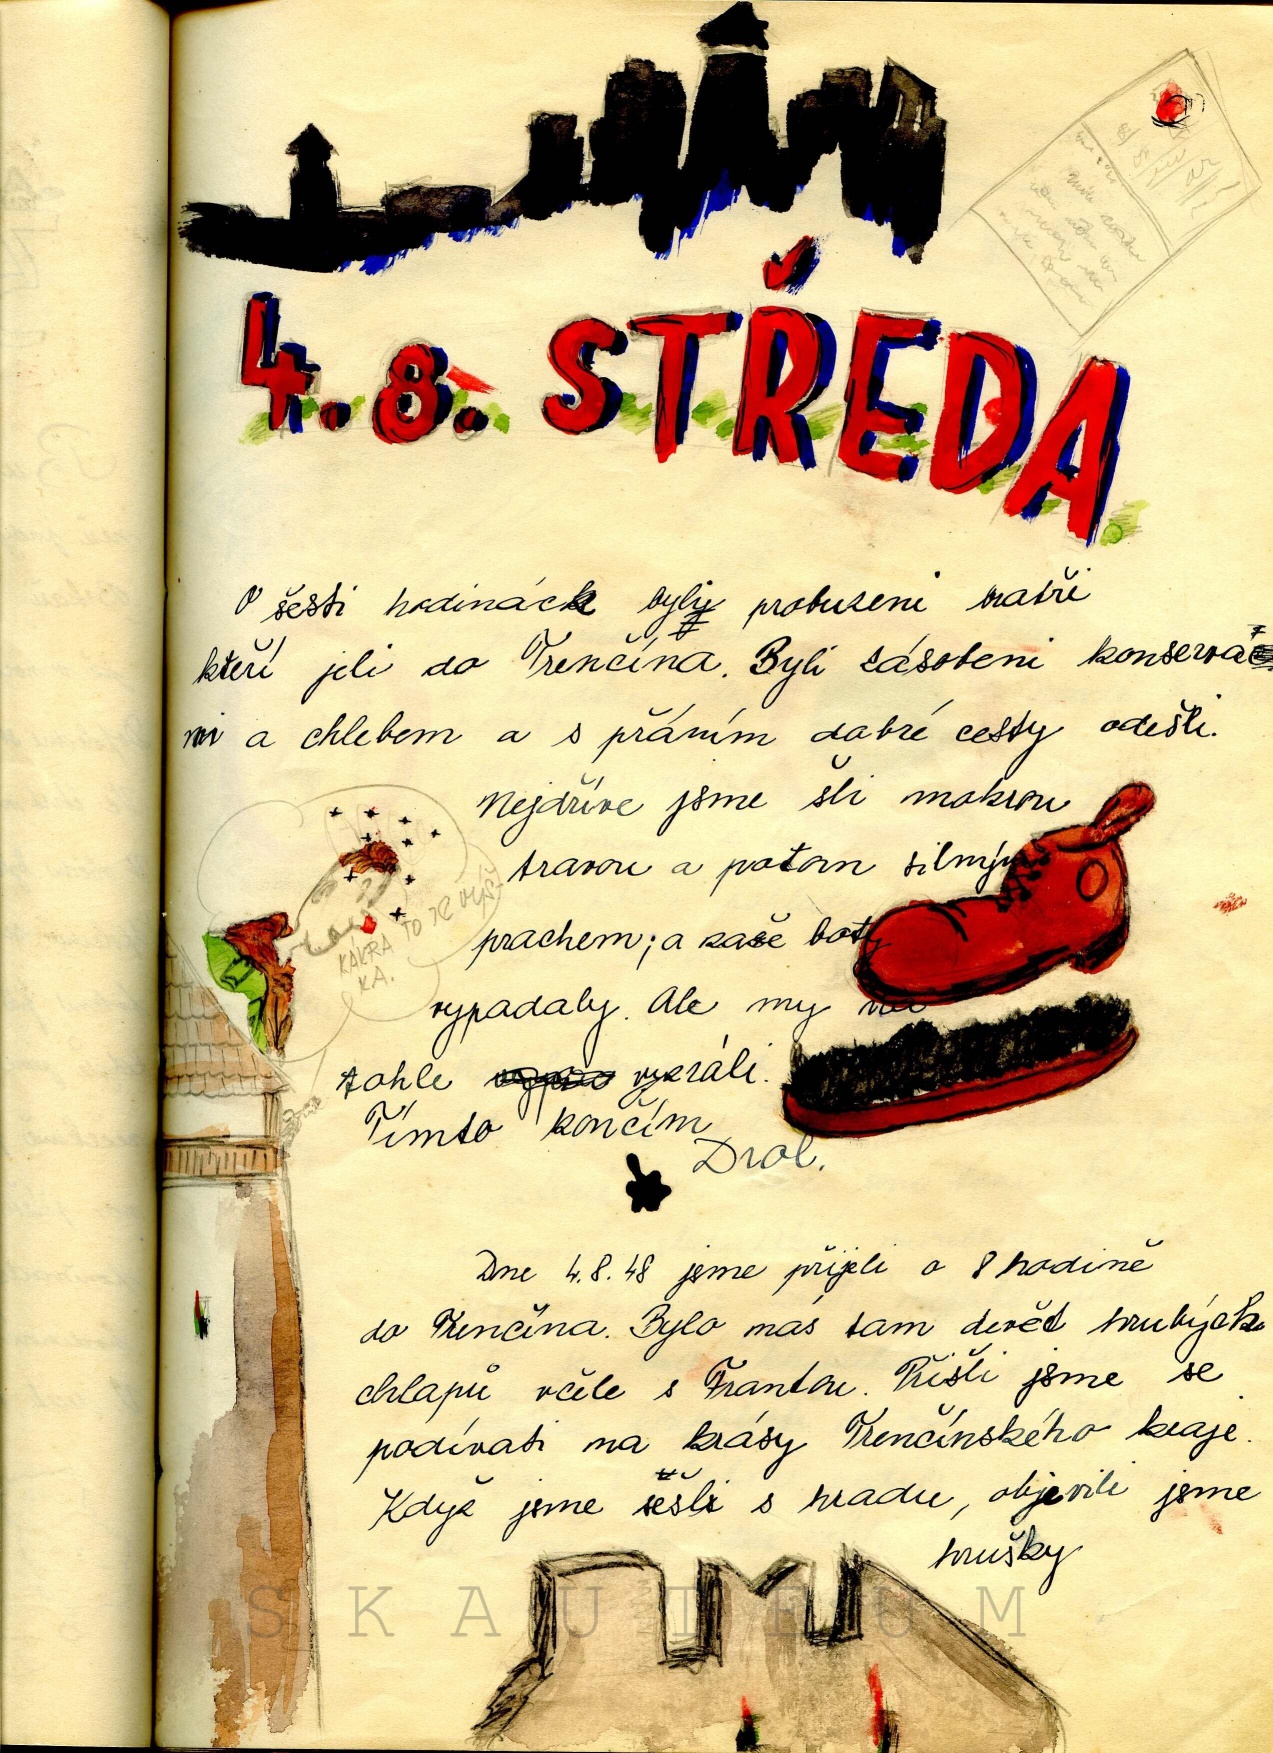 4. 8. STŘEDA
V šesti hodinách byli probuzeni bratři
kteří jeli do Trenčína. Byli zásobeni konserva-
mi a chlebem a s přáním dobré cesty odešli.
Nejdříve jsme šli mokrou
travou a potom silným
prachem; a naše boty
vypadaly. Ale my na
tohle vyzráli.
Tímto končím
Drol.
KAKRA TO JE VÝŠ
KA.
Dne 4.8.48 jsme přijeli o 8 hodině
do Trenčína. Bylo nás tam devět hrubých
chlapů včele s Frantou. Přišli jsme se
podívati na krásy Trenčínského kraje.
Když jsme sešli s hradu, objevili jsme
hrušky
SKAUTEUM